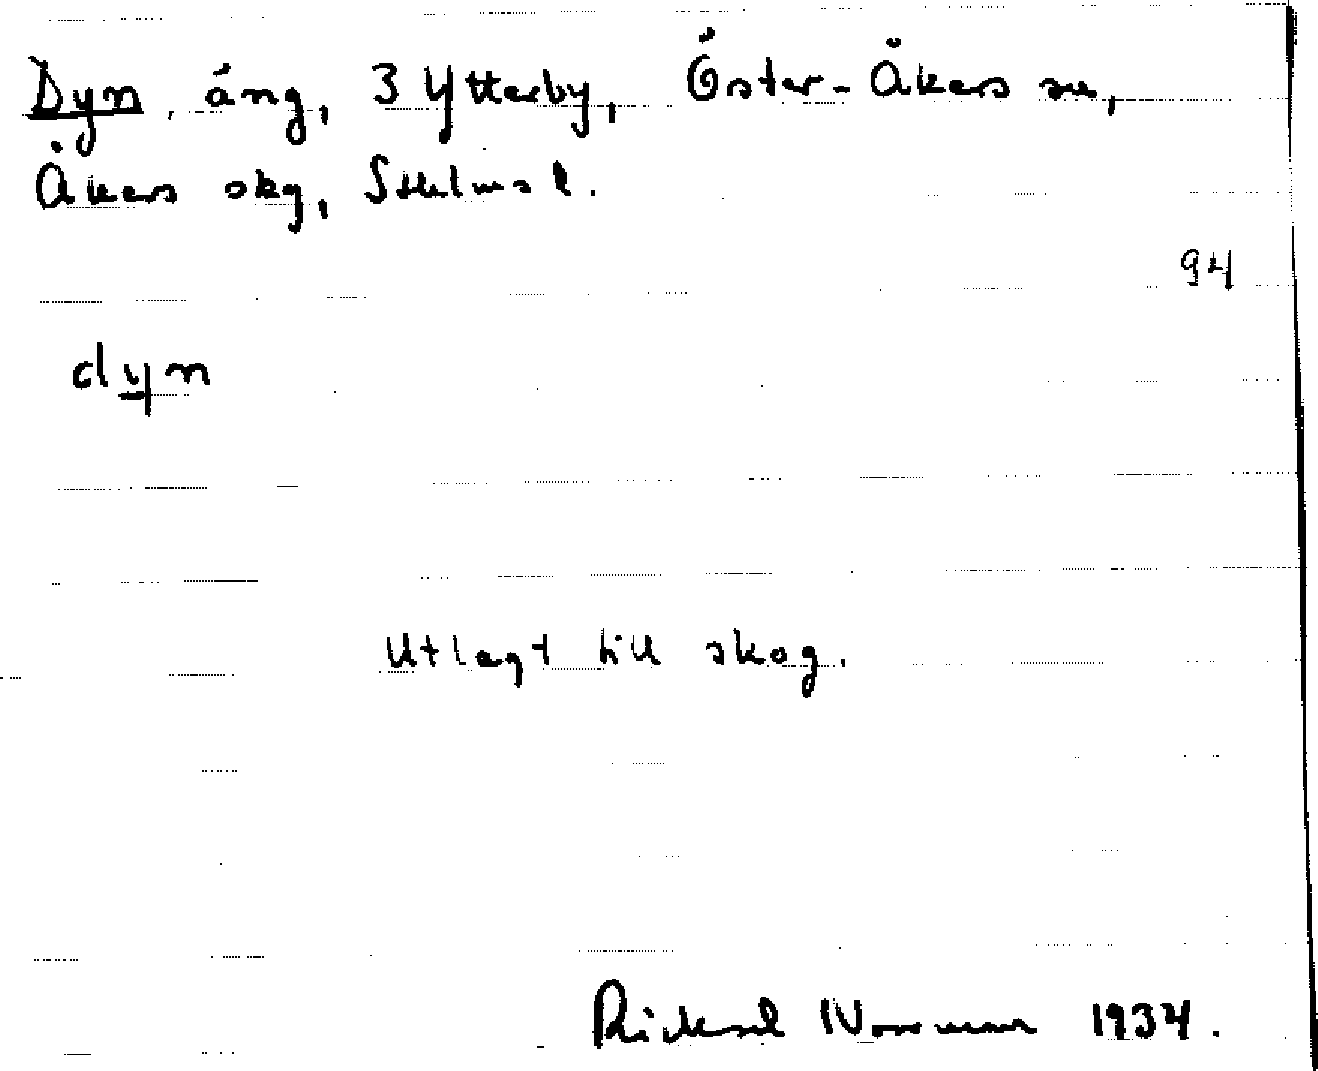 Dyn, äng, 3 Ytterby, Öster-Åkers sn,
Åkers skg, Sthlms l.
94
dyn
Utlagt till skog.
Rickard Norrman 1934.